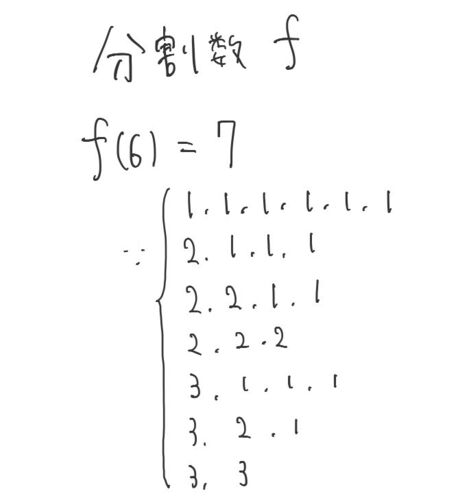 分割数 f
f(6) = 7
∵ { 1. 1. 1. 1. 1. 1
2. 1. 1. 1
2. 2. 1. 1
2. 2. 2
3. 1. 1. 1
3. 2. 1
3. 3